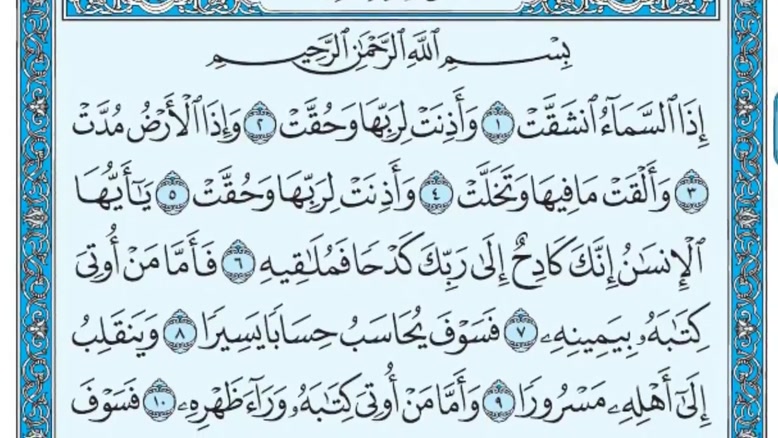 بِسْمِ ٱللَّهِ ٱلرَّحْمَٰنِ ٱلرَّحِيمِ
إِذَا ٱلسَّمَآءُ ٱنشَقَّتْ ١ وَأَذِنَتْ لِرَبِّهَا وَحُقَّتْ ٢ وَإِذَا ٱلْأَرْضُ مُدَّتْ
٣ وَأَلْقَتْ مَا فِيهَا وَتَخَلَّتْ ٤ وَأَذِنَتْ لِرَبِّهَا وَحُقَّتْ ٥ يَٰٓأَيُّهَا
ٱلْإِنسَٰنُ إِنَّكَ كَادِحٌ إِلَىٰ رَبِّكَ كَدْحًا فَمُلَٰقِيهِ ٦ فَأَمَّا مَنْ أُوتِيَ
كِتَٰبَهُۥ بِيَمِينِهِۦ ٧ فَسَوْفَ يُحَاسَبُ حِسَابًا يَسِيرًا ٨ وَيَنقَلِبُ
إِلَىٰٓ أَهْلِهِۦ مَسْرُورًا ٩ وَأَمَّا مَنْ أُوتِيَ كِتَٰبَهُۥ وَرَآءَ ظَهْرِهِۦ ١٠ فَسَوْفَ